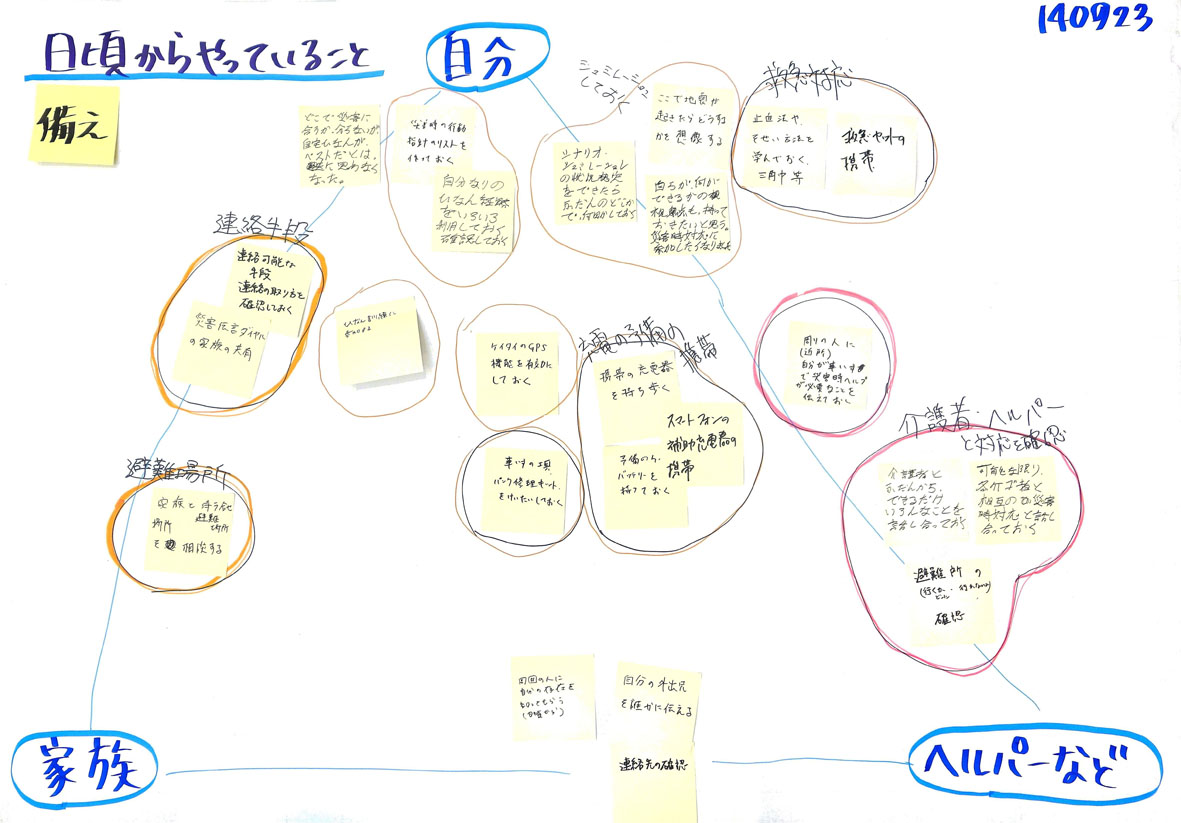 140923
日頃からやっていること
備え
自分
どこで災害に
合うか、分らないが、
自宅ひなんが、
ベストだとは、
思わなく
なった。
災害時の行動
指針のリストを
作っておく
自分なりの
ひなん経路
をいろいろ
利用しておく
確認しておく
シュミレーション
しておく
ここで地震が
起きたらどうするか
を想像する
シナリオ・
シュミレーション
の状況設定
をできたら
ふだんのどこか
で、何回かしておく
自らが、何が
できるかの
視点も、持って
おきたいと思う。
災害時対応に
参加したくなりました
救急対応
止血法や、
そせい方法を
学んでおく、
三角巾等
救急セットの
携帯
連絡手段
連絡可能な
手段
連絡の取り方を
確認しておく
災害伝言ダイヤル
の家族の共有
ケイタイのGPS
機能を有効に
しておく
車いすの工具、
パンク修理キット、
をけいたいしておく
充電の予備の
携帯
携帯の充電器
を持ち歩く
スマートフォンの
補助充電器の
携帯
予備の
バッテリーを
持っておく
周りの人に
(近所)
自分が車いす
で災害時ヘルプ
が必要なことを
伝えておく
介護者・ヘルパー
と対応を確認
介護者と
ふだんから、
できるだけ
いろんなことを
話し合っておく
可能な限り、
介護者と
相互の災害
時対応を話し
合っておく
避難所の
確認
避難場所
家族と落ち合う
場所
避難
場所
を相談する
周囲の人に
自分の存在を
知ってもらう
(日頃から)
自分の外出先
を誰かに伝える
連絡先の確認
家族
ヘルパーなど